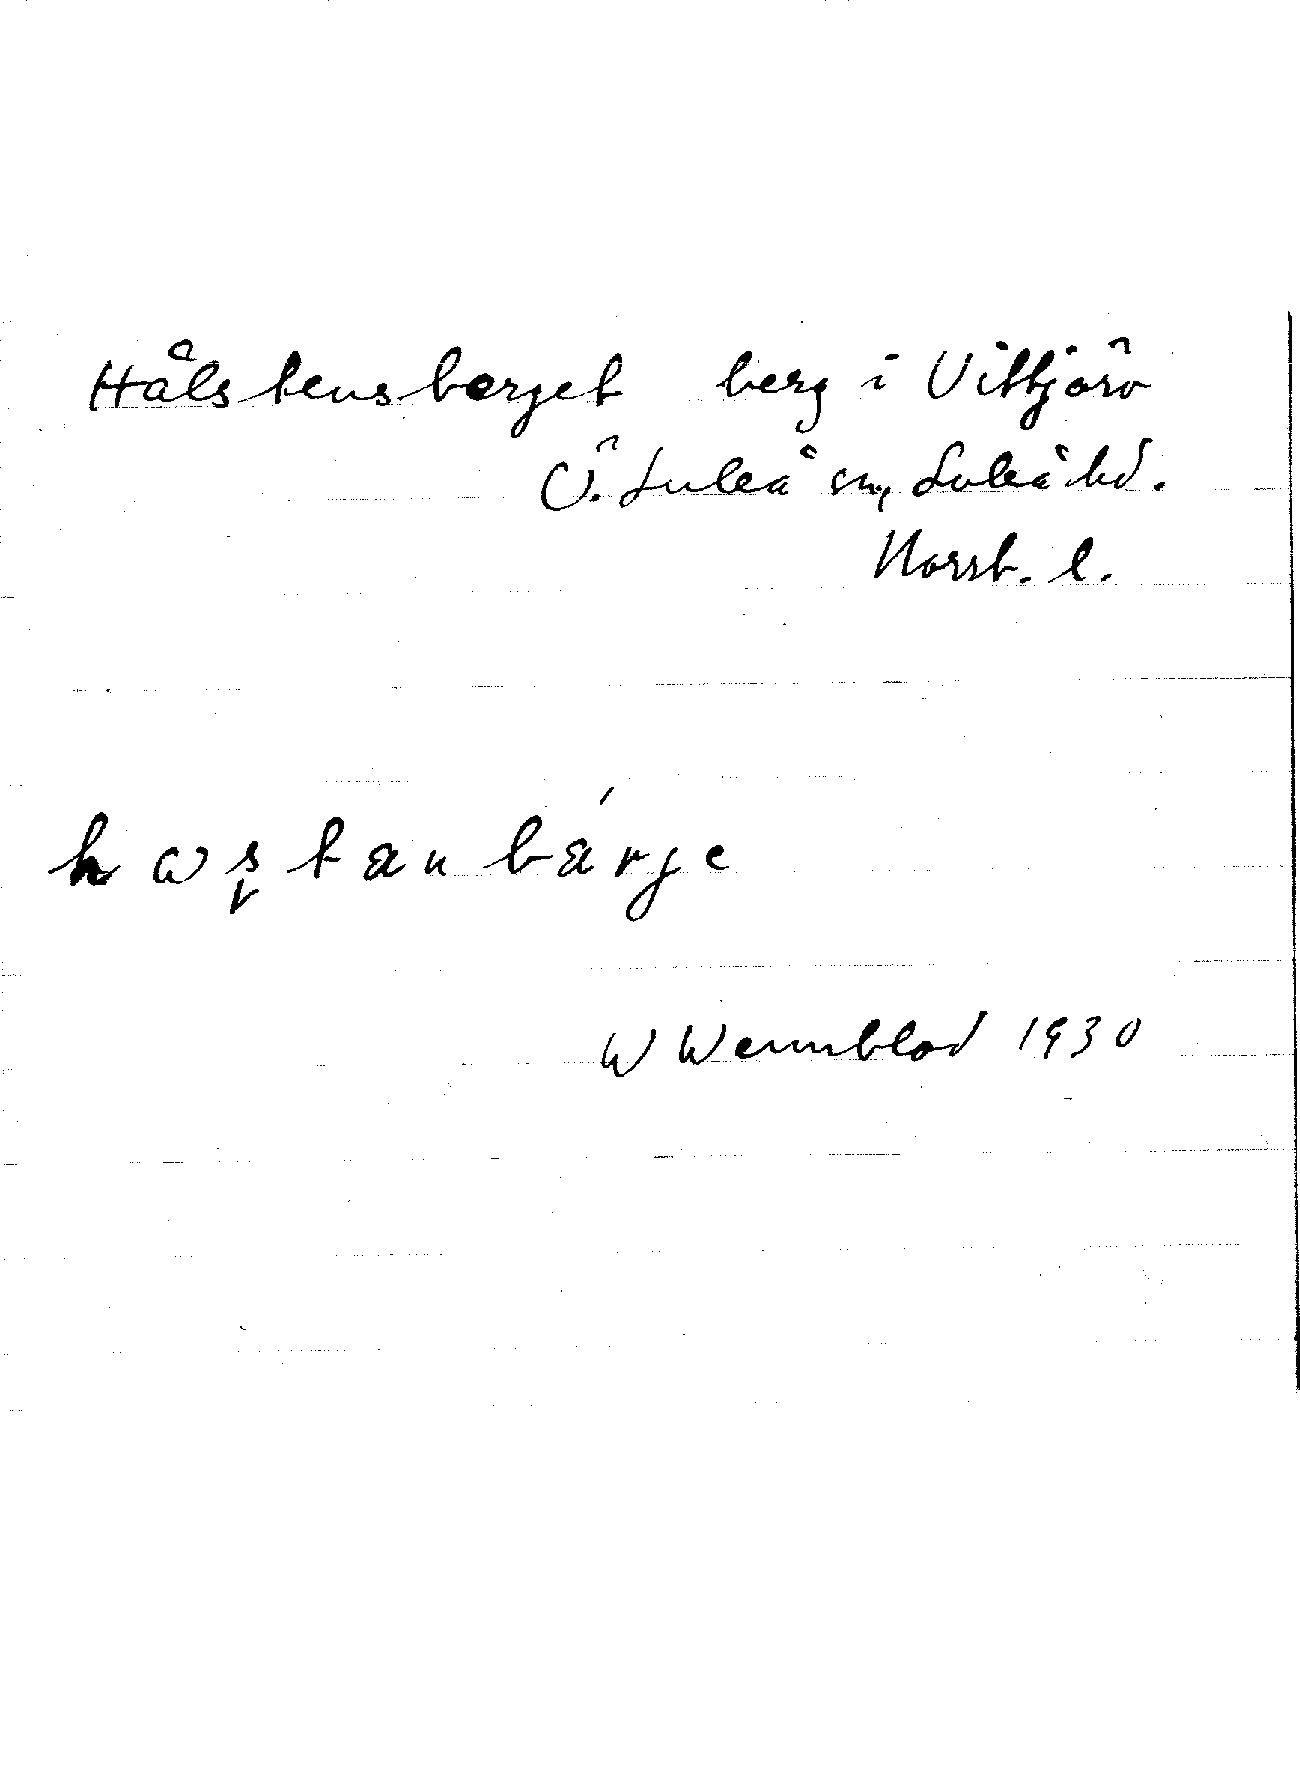 Hålstensberget berg i Vittjärv
Ö. Luleå sn, Luleå hd.
Norrb. l.
hωştanbárje
W Wennblad 1930